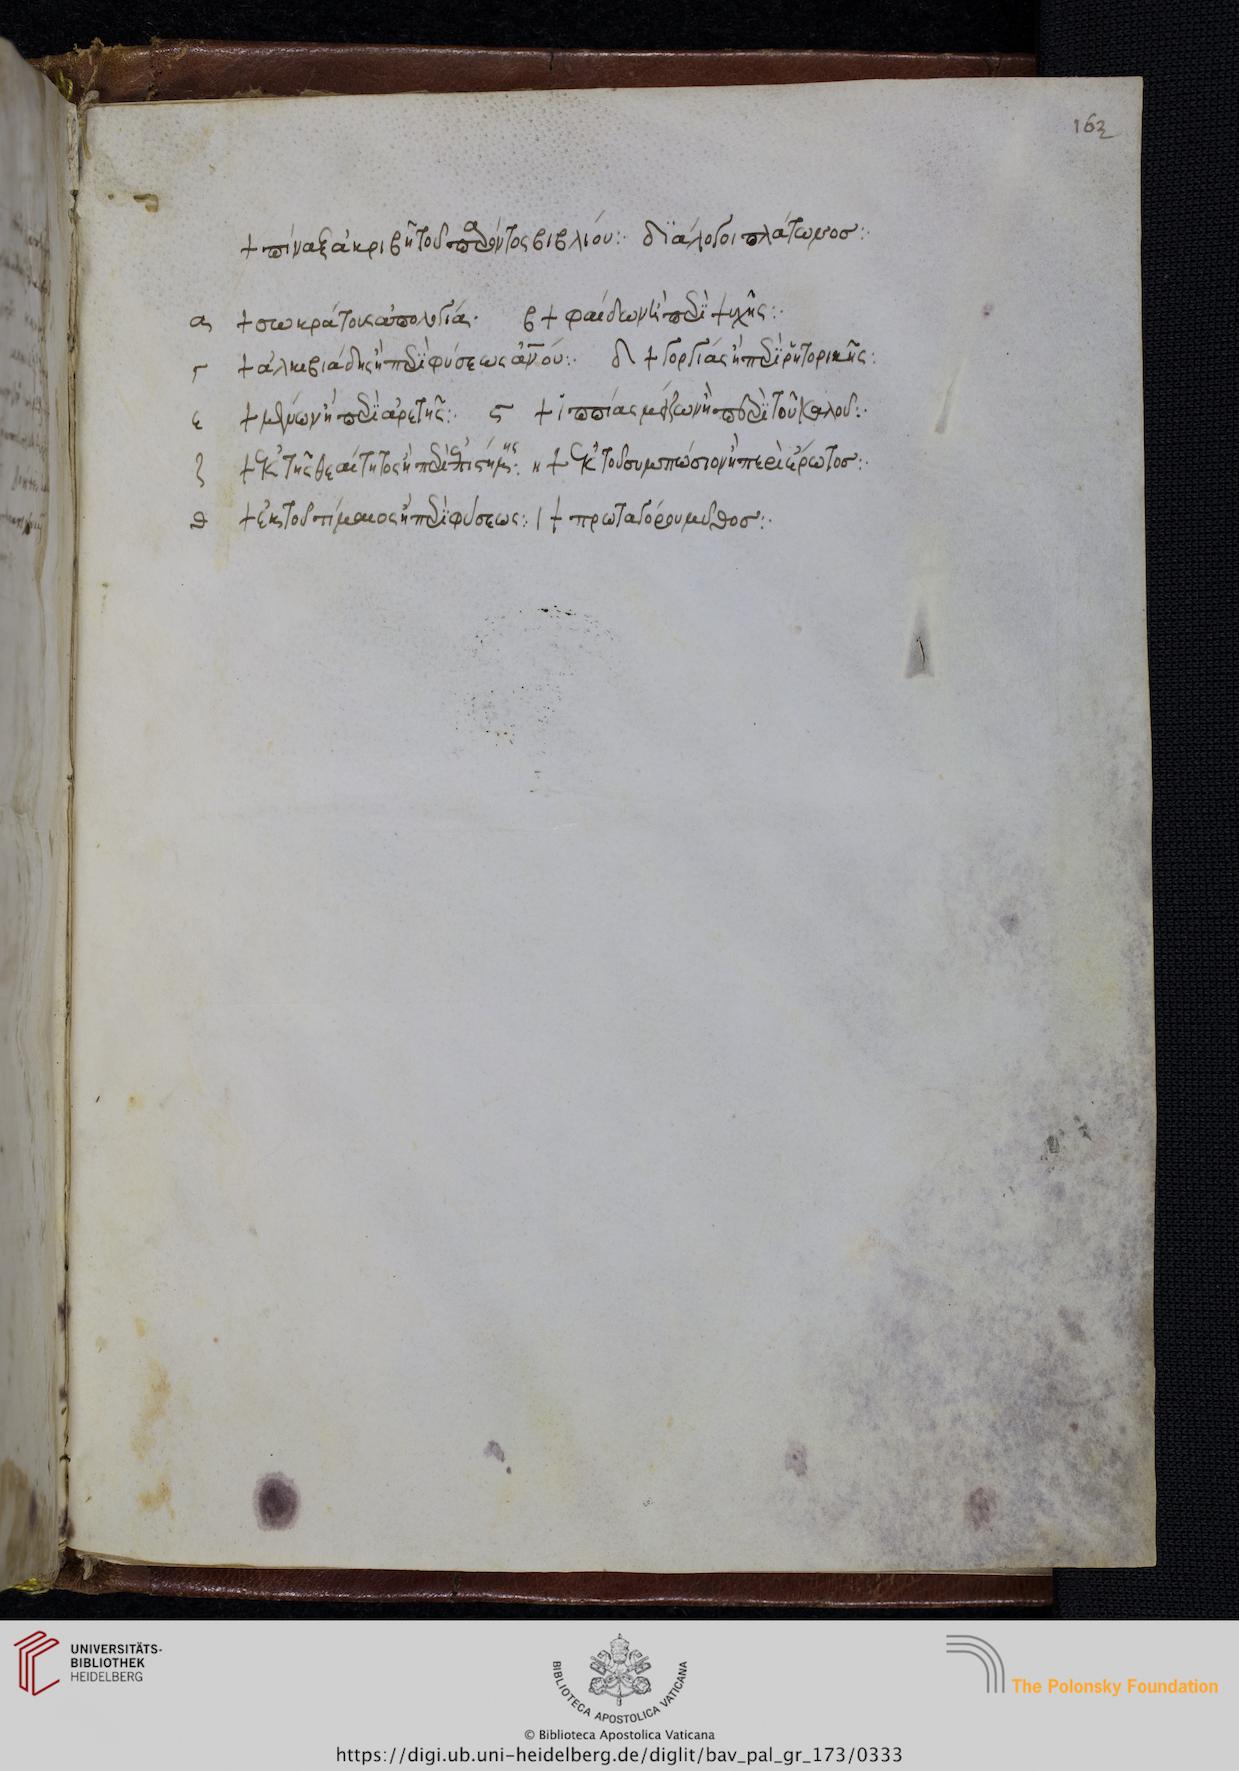 163
+ πίναξ ἀκριβὴς τοῦ παρόντος βιβλίου:· διάλογοι πλάτωνος:·
α + σωκράτους ἀπολογία· β + φαίδων ἢ περὶ ψυχῆς:·
γ + ἀλκιβιάδης ἢ περὶ φύσεως ἀνου:· δ + γοργίας ἢ περὶ ῥητορικῆς:
ε + μένων ἢ περὶ ἀρετῆς:· ς + ἱππίας μείζων ἢ περὶ τοῦ καλοῦ:·
ζ + ἐκ τῆς θεαίτητος ἢ περὶ ἐπιστήμης:· η + ἐκ τοῦ συμπώσιον ἢ περὶ ἔρωτος:·
θ + ἐκ τοῦ τίμαιος ἢ περὶ φύσεως:· ι + πρωταγόρου μῦθος:·
UNIVERSITÄTS-
BIBLIOTHEK
HEIDELBERG
BIBLIOTECA APOSTOLICA VATICANA
The Polonsky Foundation
© Biblioteca Apostolica Vaticana
https://digi.ub.uni-heidelberg.de/diglit/bav_pal_gr_173/0333